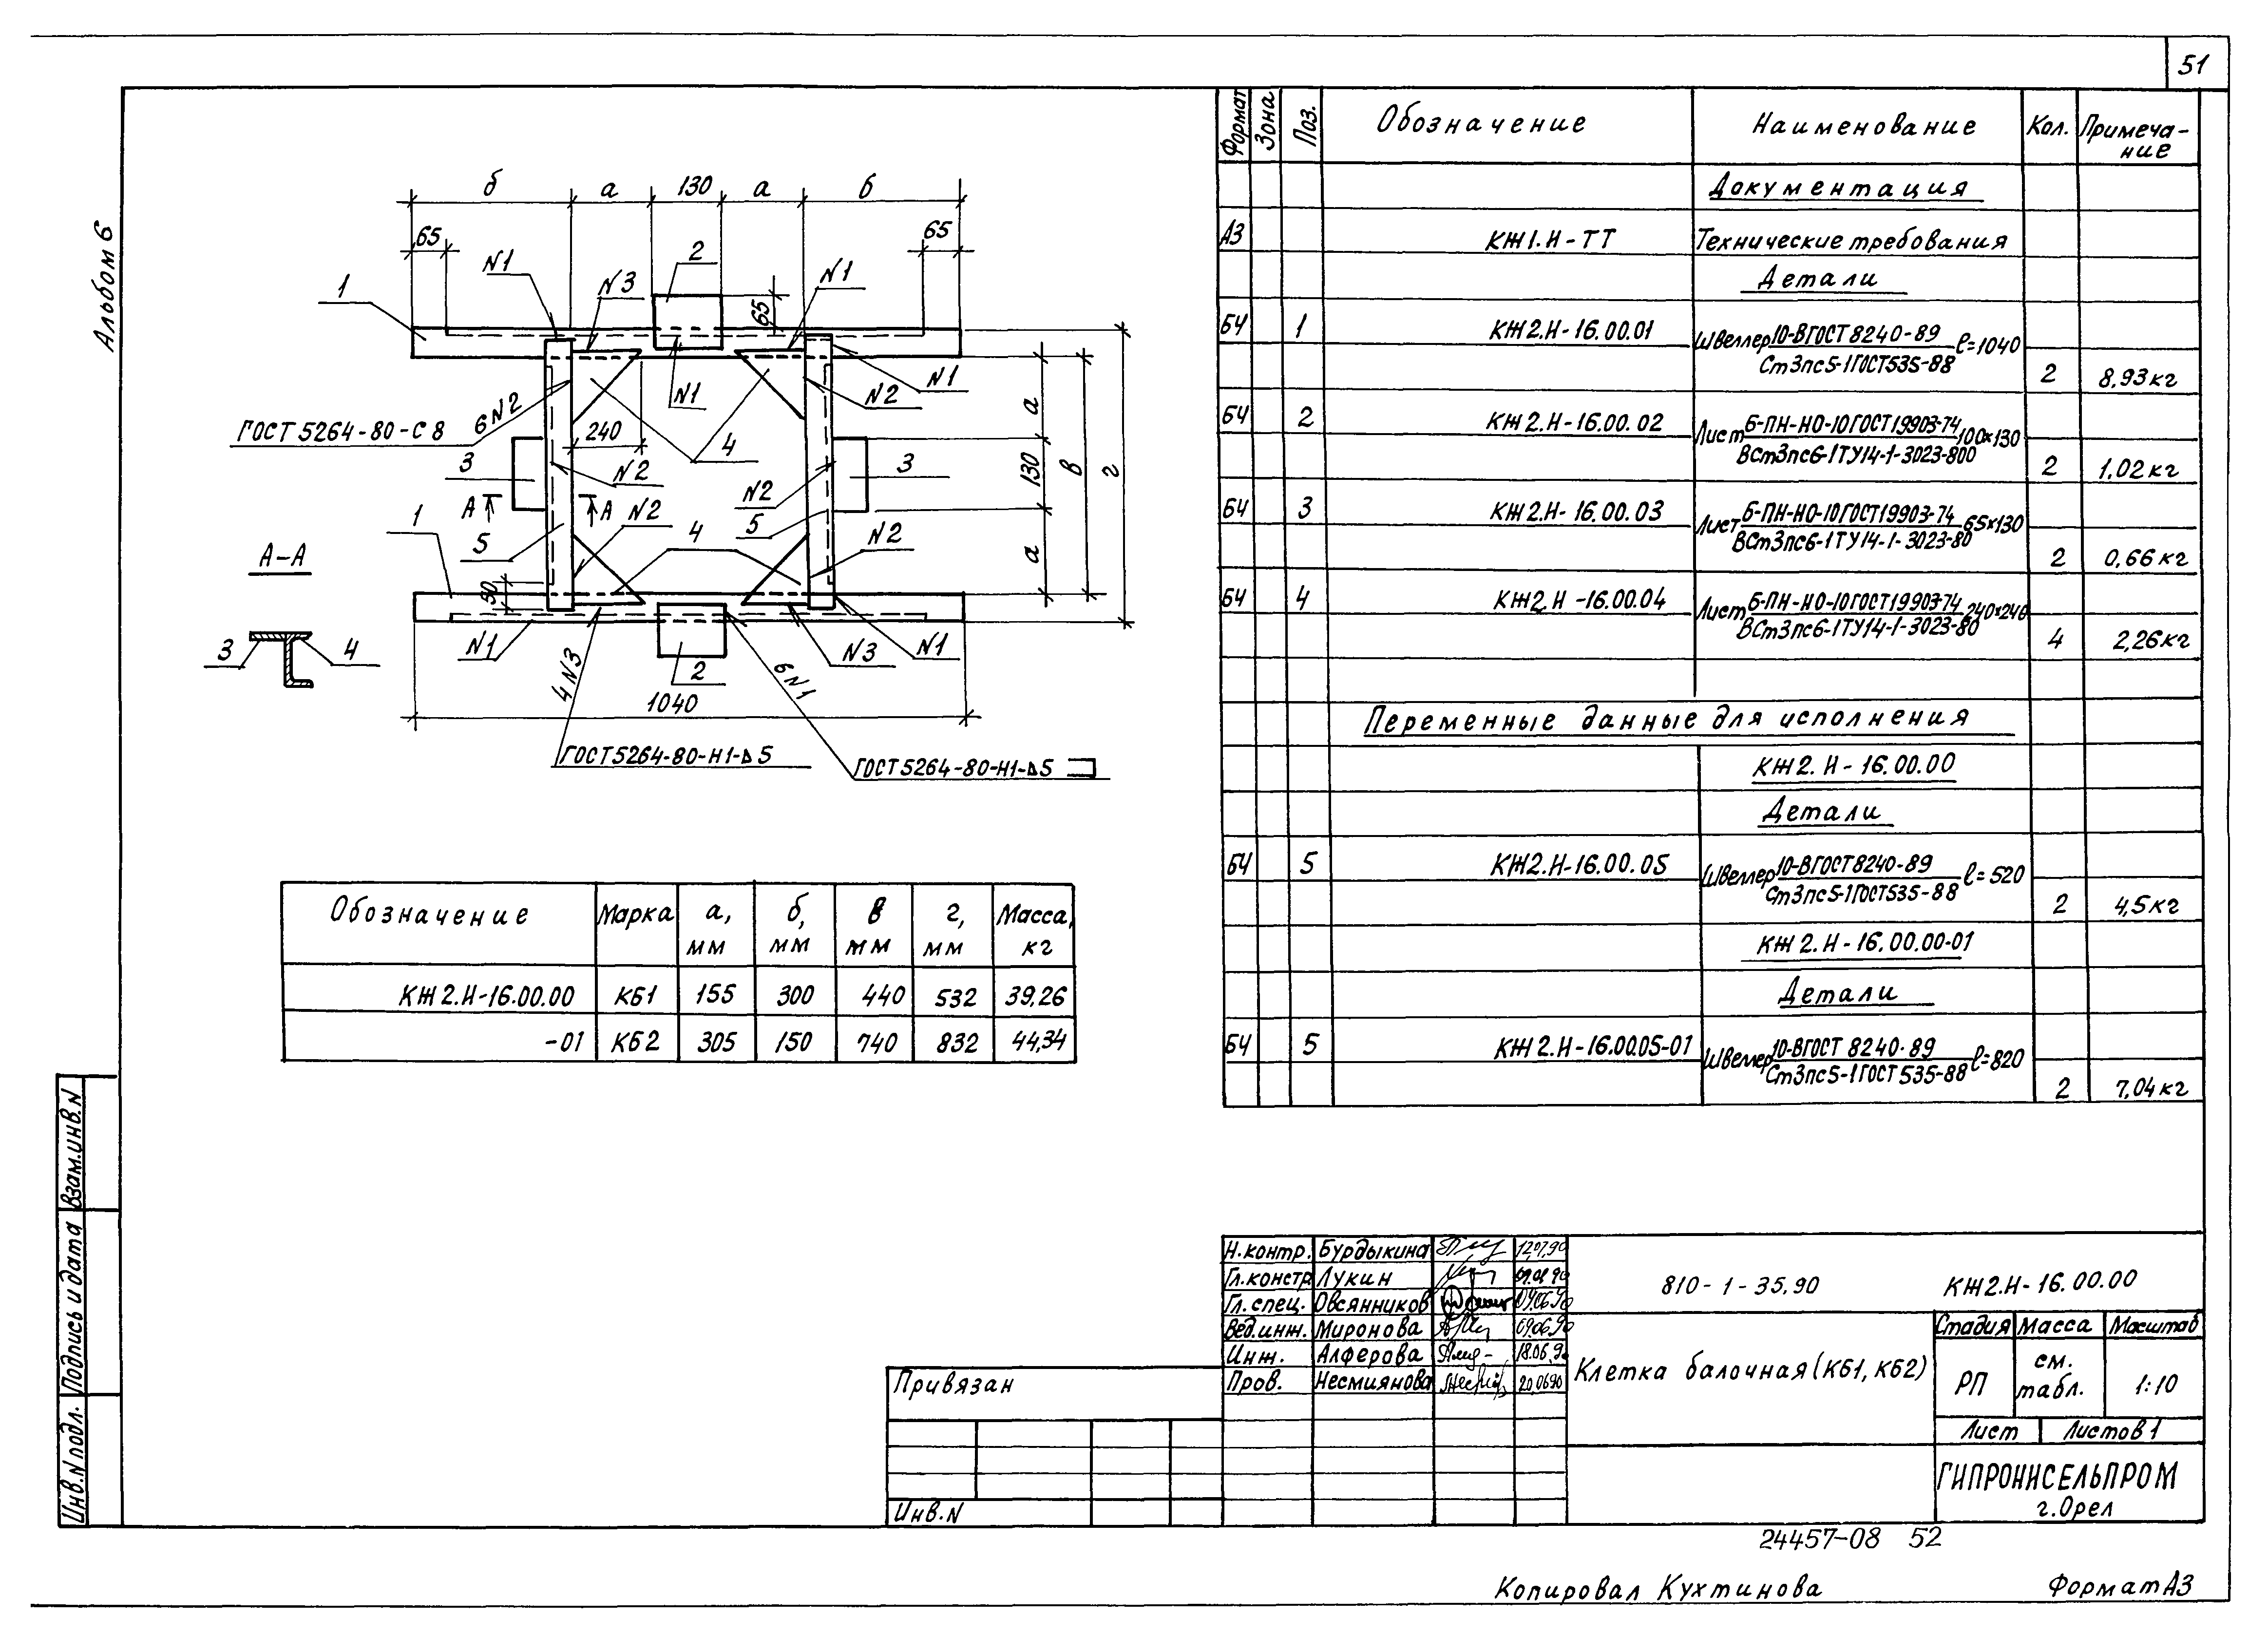 51
Альбом 6
б а 130 а б
65 65
N1 N3 2 N1
1
65
ГОСТ 5264-80-С8
6 N2
240
N1
4
N2
N1
3
N2
N2
3
а
130
а
в
г
А А
N2
1
5
4
5
N2
50
А-А
3 4
N1
4 N3
2
6 N1
N3
N1
1040
ГОСТ5264-80-Н1-Δ5
ГОСТ5264-80-Н1-Δ5
Обозначение Марка а, мм б, мм в мм г, мм Масса, кг
КЖ2.И-16.00.00 КБ1 155 300 440 532 39,26
-01 КБ2 305 150 740 832 44,34
Формат Зона Поз. Обозначение Наименование Кол. Примеча-
ние
Документация
А3 КЖ1.И-ТТ Технические требования
Детали
БЧ 1 КЖ2.И-16.00.01 Швеллер 10-В ГОСТ 8240-89 ℓ=1040
Ст3пс5-1 ГОСТ535-88 2 8,93кг
БЧ 2 КЖ2.И-16.00.02 Лист 6-ПН-НО-10 ГОСТ19903-74 100×130
ВСт3пс6-1ТУ14-1-3023-800 2 1,02кг
БЧ 3 КЖ2.И-16.00.03 Лист 6-ПН-НО-10 ГОСТ19903-74 65×130
ВСт3пс6-1ТУ14-1-3023-80 2 0,66кг
БЧ 4 КЖ2.И-16.00.04 Лист 6-ПН-НО-10 ГОСТ19903-74 240×240
ВСт3пс6-1ТУ14-1-3023-80 4 2,26кг
Переменные данные для исполнения
КЖ2.И-16.00.00
Детали
БЧ 5 КЖ2.И-16.00.05 Швеллер 10-В ГОСТ 8240-89 ℓ=520
Ст3пс5-1 ГОСТ535-88 2 4,5кг
КЖ2.И-16.00.00-01
Детали
БЧ 5 КЖ2.И-16.00.05-01 Швеллер 10-В ГОСТ 8240-89 ℓ=820
Ст3пс5-1 ГОСТ 535-88 2 7,04кг
Взам.инв.N
Подпись и дата
Инв.N подл.
Привязан
Инв.N
Н.контр. Бурдыкина 12.07.90
Гл.констр Лукин 09.08.90
Гл.спец. Овсянников 09.06.90
Вед.инж. Миронова 09.06.90
Инж. Алферова 18.06.90
Пров. Несмиянова 20.06.90
810-1-35.90 КЖ2.И-16.00.00
Клетка балочная(КБ1, КБ2)
Стадия Масса Масштаб
РП см. табл. 1:10
Лист Листов 1
ГИПРОНИСЕЛЬПРОМ
г.Орел
24457-08 52
Копировал Кухтинова Формат А3